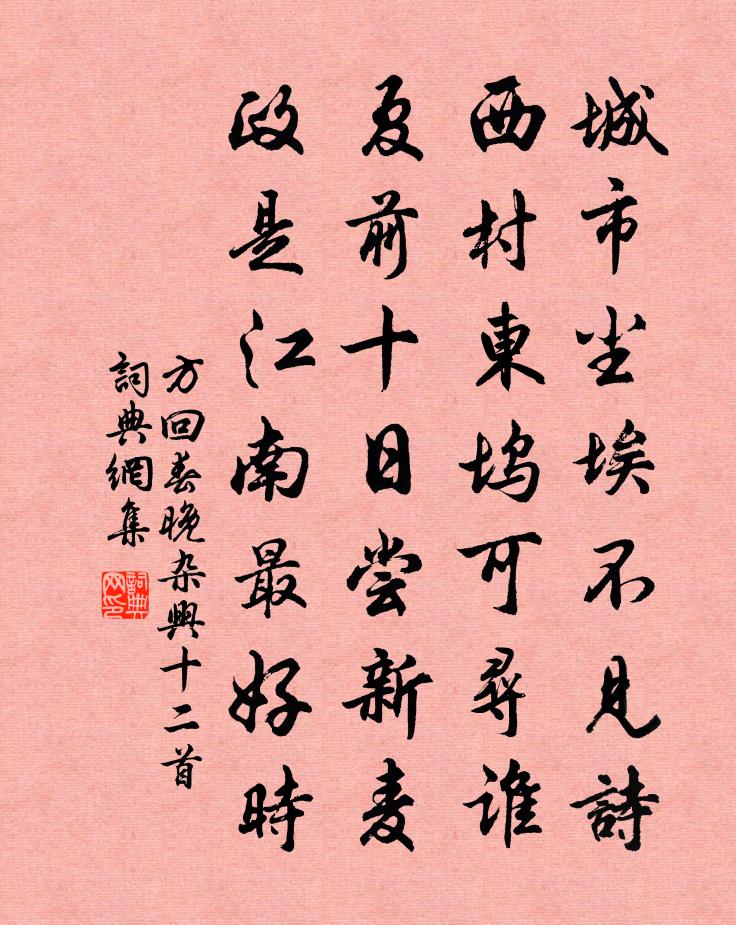 城市尘埃不見詩
西村東塢可尋誰
夏前十日尝新麦
政是江南最好時
方回春晚杂興十二首
詞典網集
詞典网印